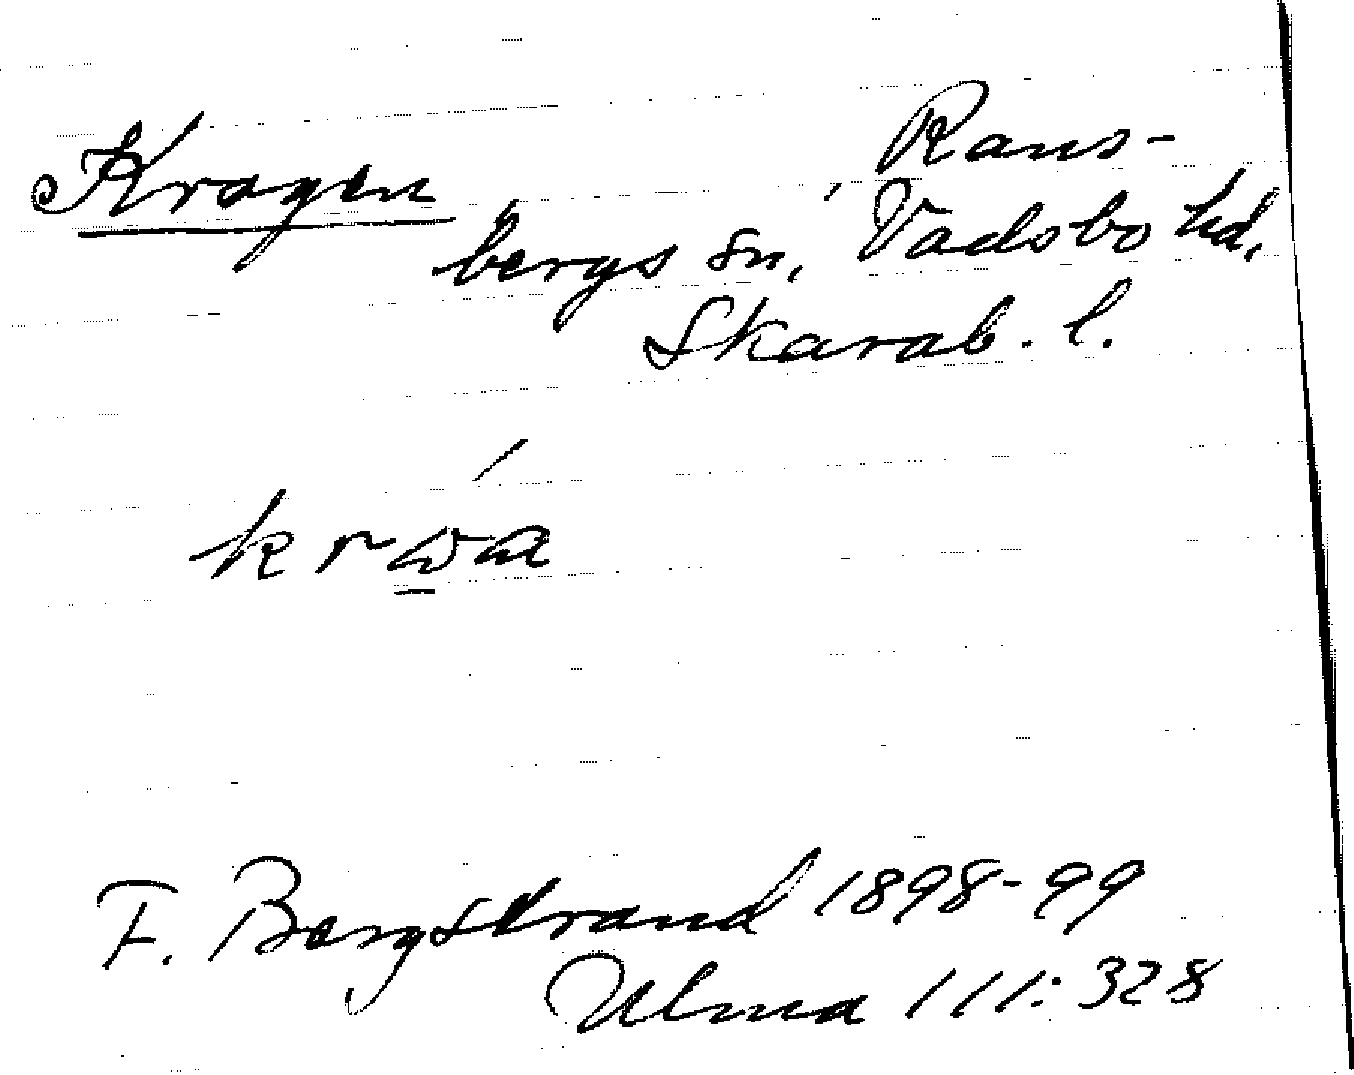 Kragen
Rans-
bergs sn, Vadsbo hd,
Skarab. l.
F. Bergstrand 1898-99
Ulma 111:328